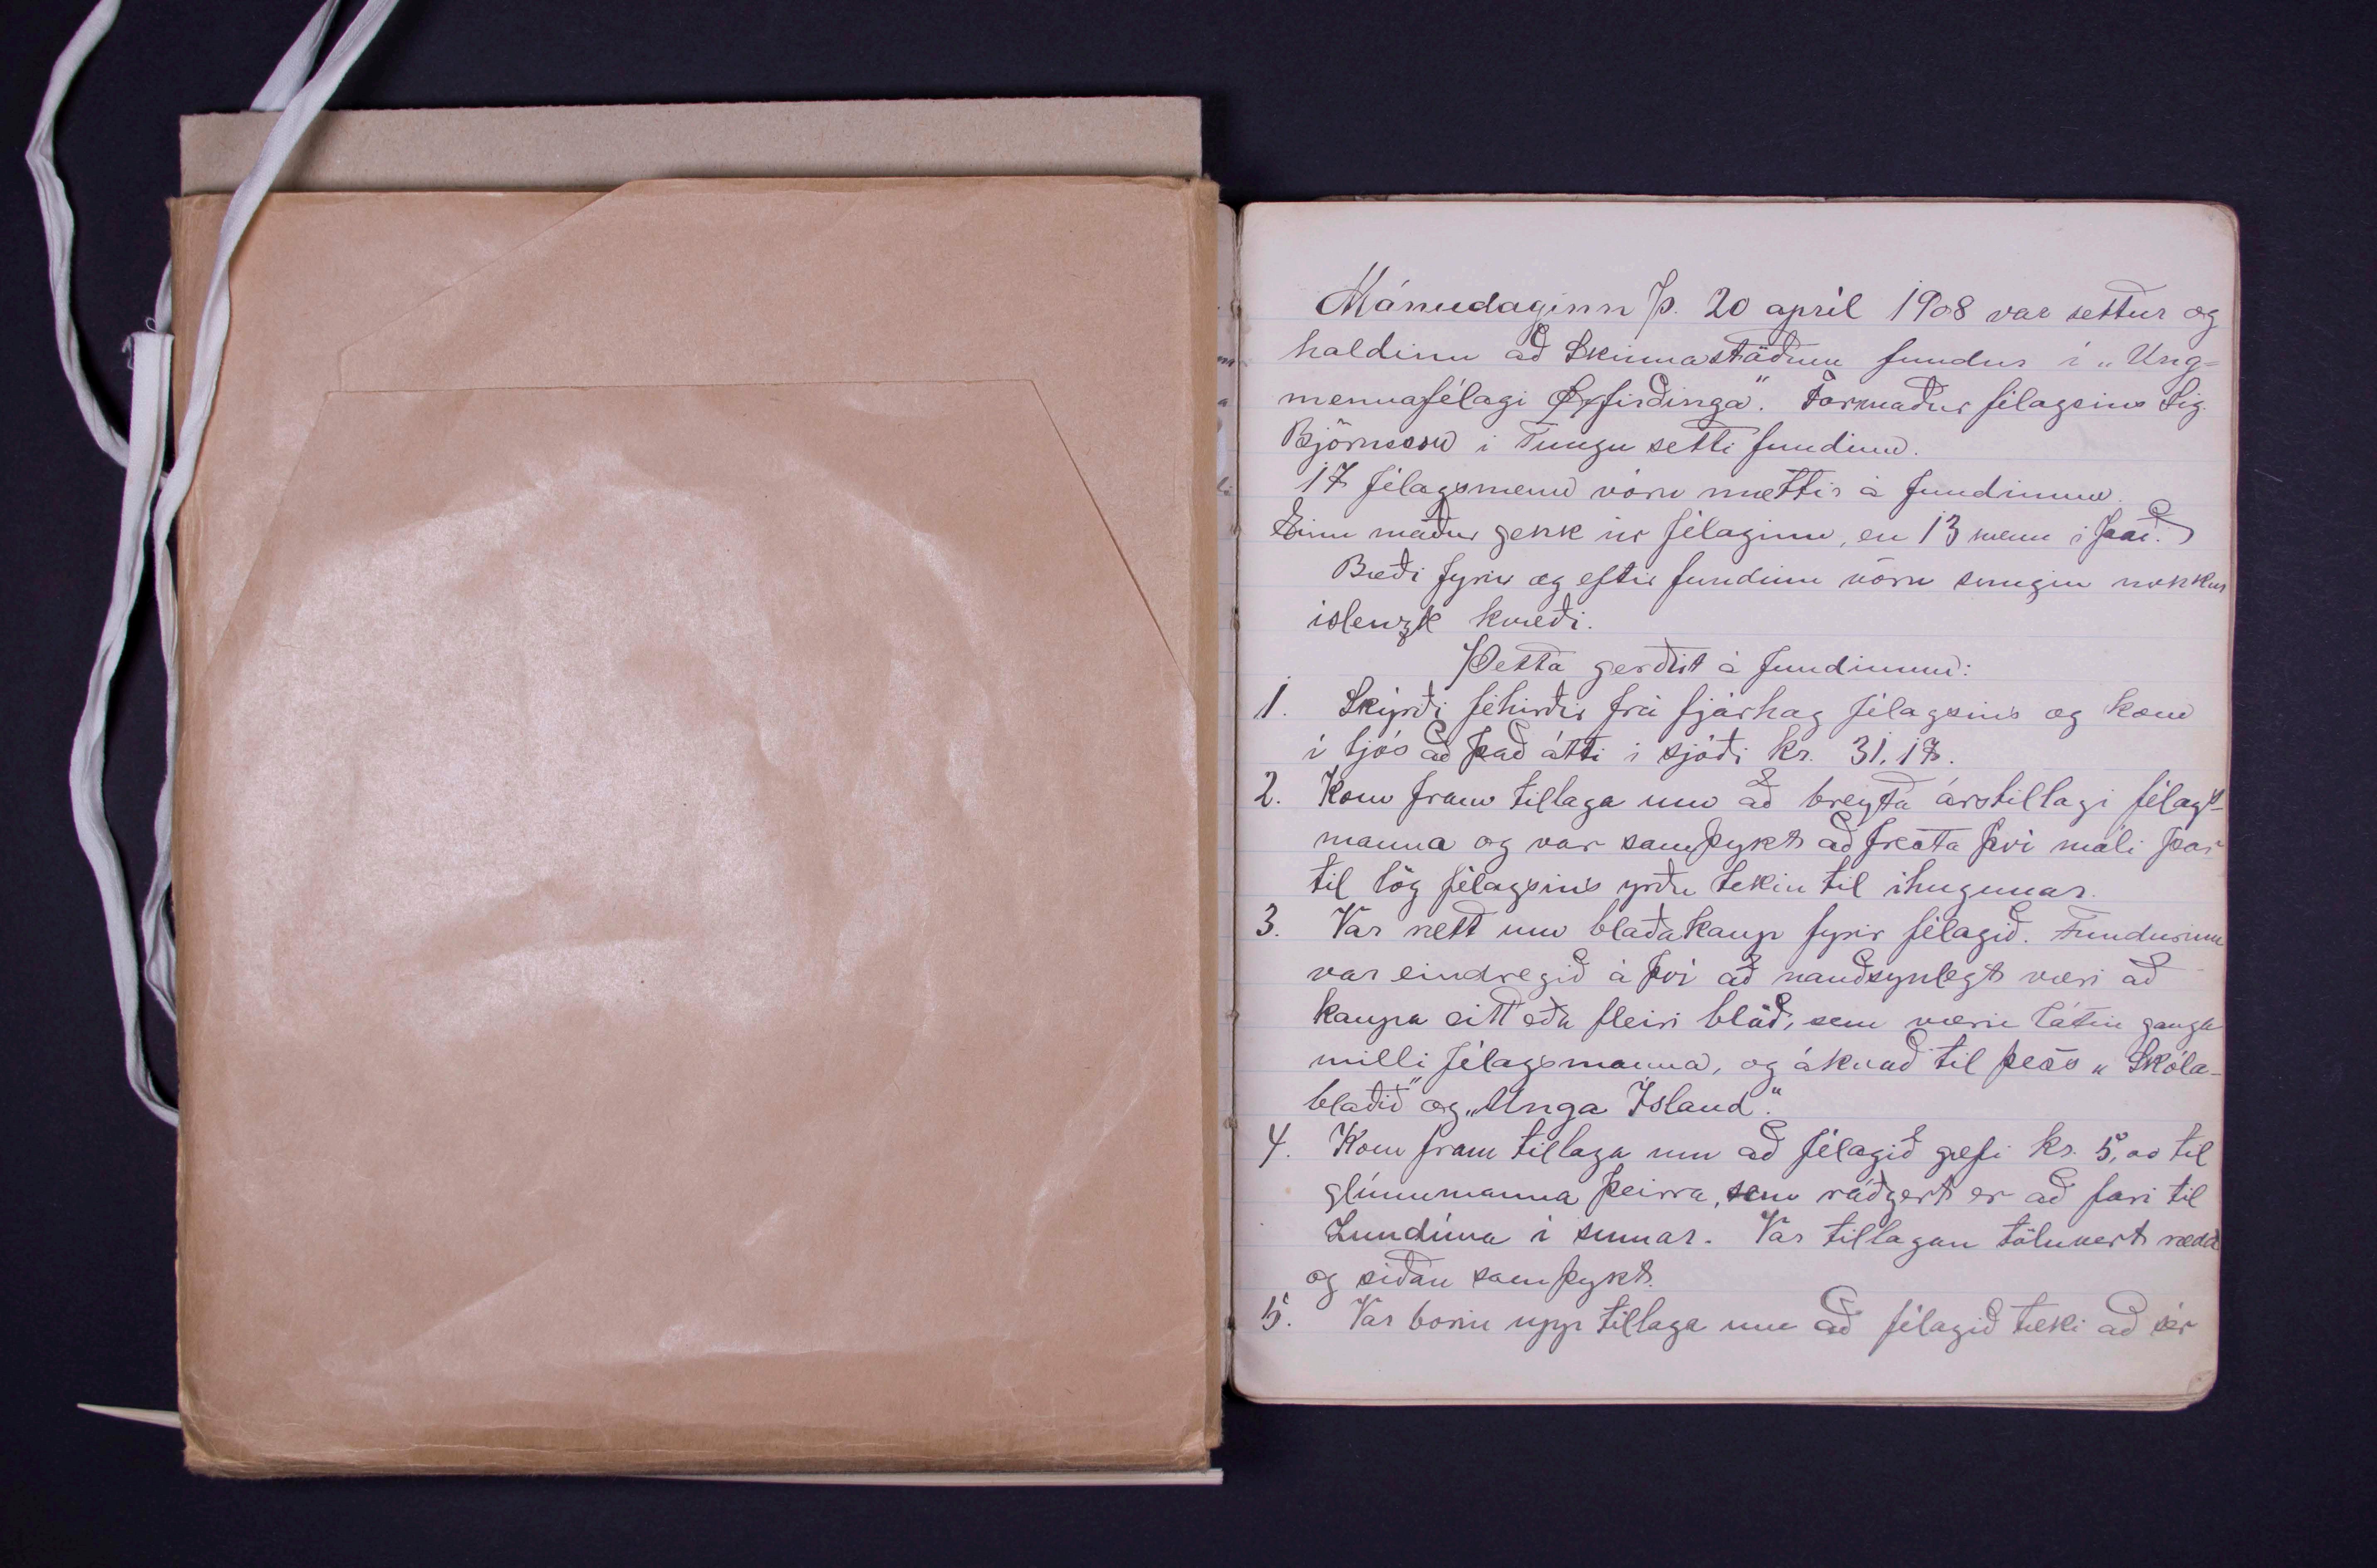 Mánudaginn þ. 20 apríl 1908 var settur og
haldinn að Skinnastöðum fundur í „Ung=
mennafélagi Øxfirðinga". Formaður félagsins Sig.
Björnsson í Tungu setti fundinn.
17 félagsmenn vóru mættir á fundinum.
Einn maður gekk úr félaginu, en 13 menn í það.
Bæði fyrir og eftir fundinn vóru sungin nokkur
íslenzk kvæði.
Þetta gerðist á fundinum:
1. Skýrði féhirðir frá fjárhag félagsins og kom
í ljós að það átti í sjóði kr. 31,17.
2. Kom fram tillaga um að breyta árstillagi félags-
manna og var samþykt að fresta því máli þar
til lög félagsins yrðu tekin til íhugunar.
3. Var rætt um blaðakaup fyrir félagið. Fundurinn
var eindregið á því að nauðsynlegt væri að
kaupa eitt eða fleiri blöð, sem væru látin ganga
milli félagsmanna, og ákvað til þess „Skóla-
blaðið" og „Unga Ísland".
4. Kom fram tillaga um að félagið gefi kr. 5,00 til
glímumanna þeirra, sem ráðgert er að fari til
Lundúna í sumar. Var tillagan töluvert rædd
og síðan samþykt.
5. Var borin upp tillaga um að félagið tæki að sér